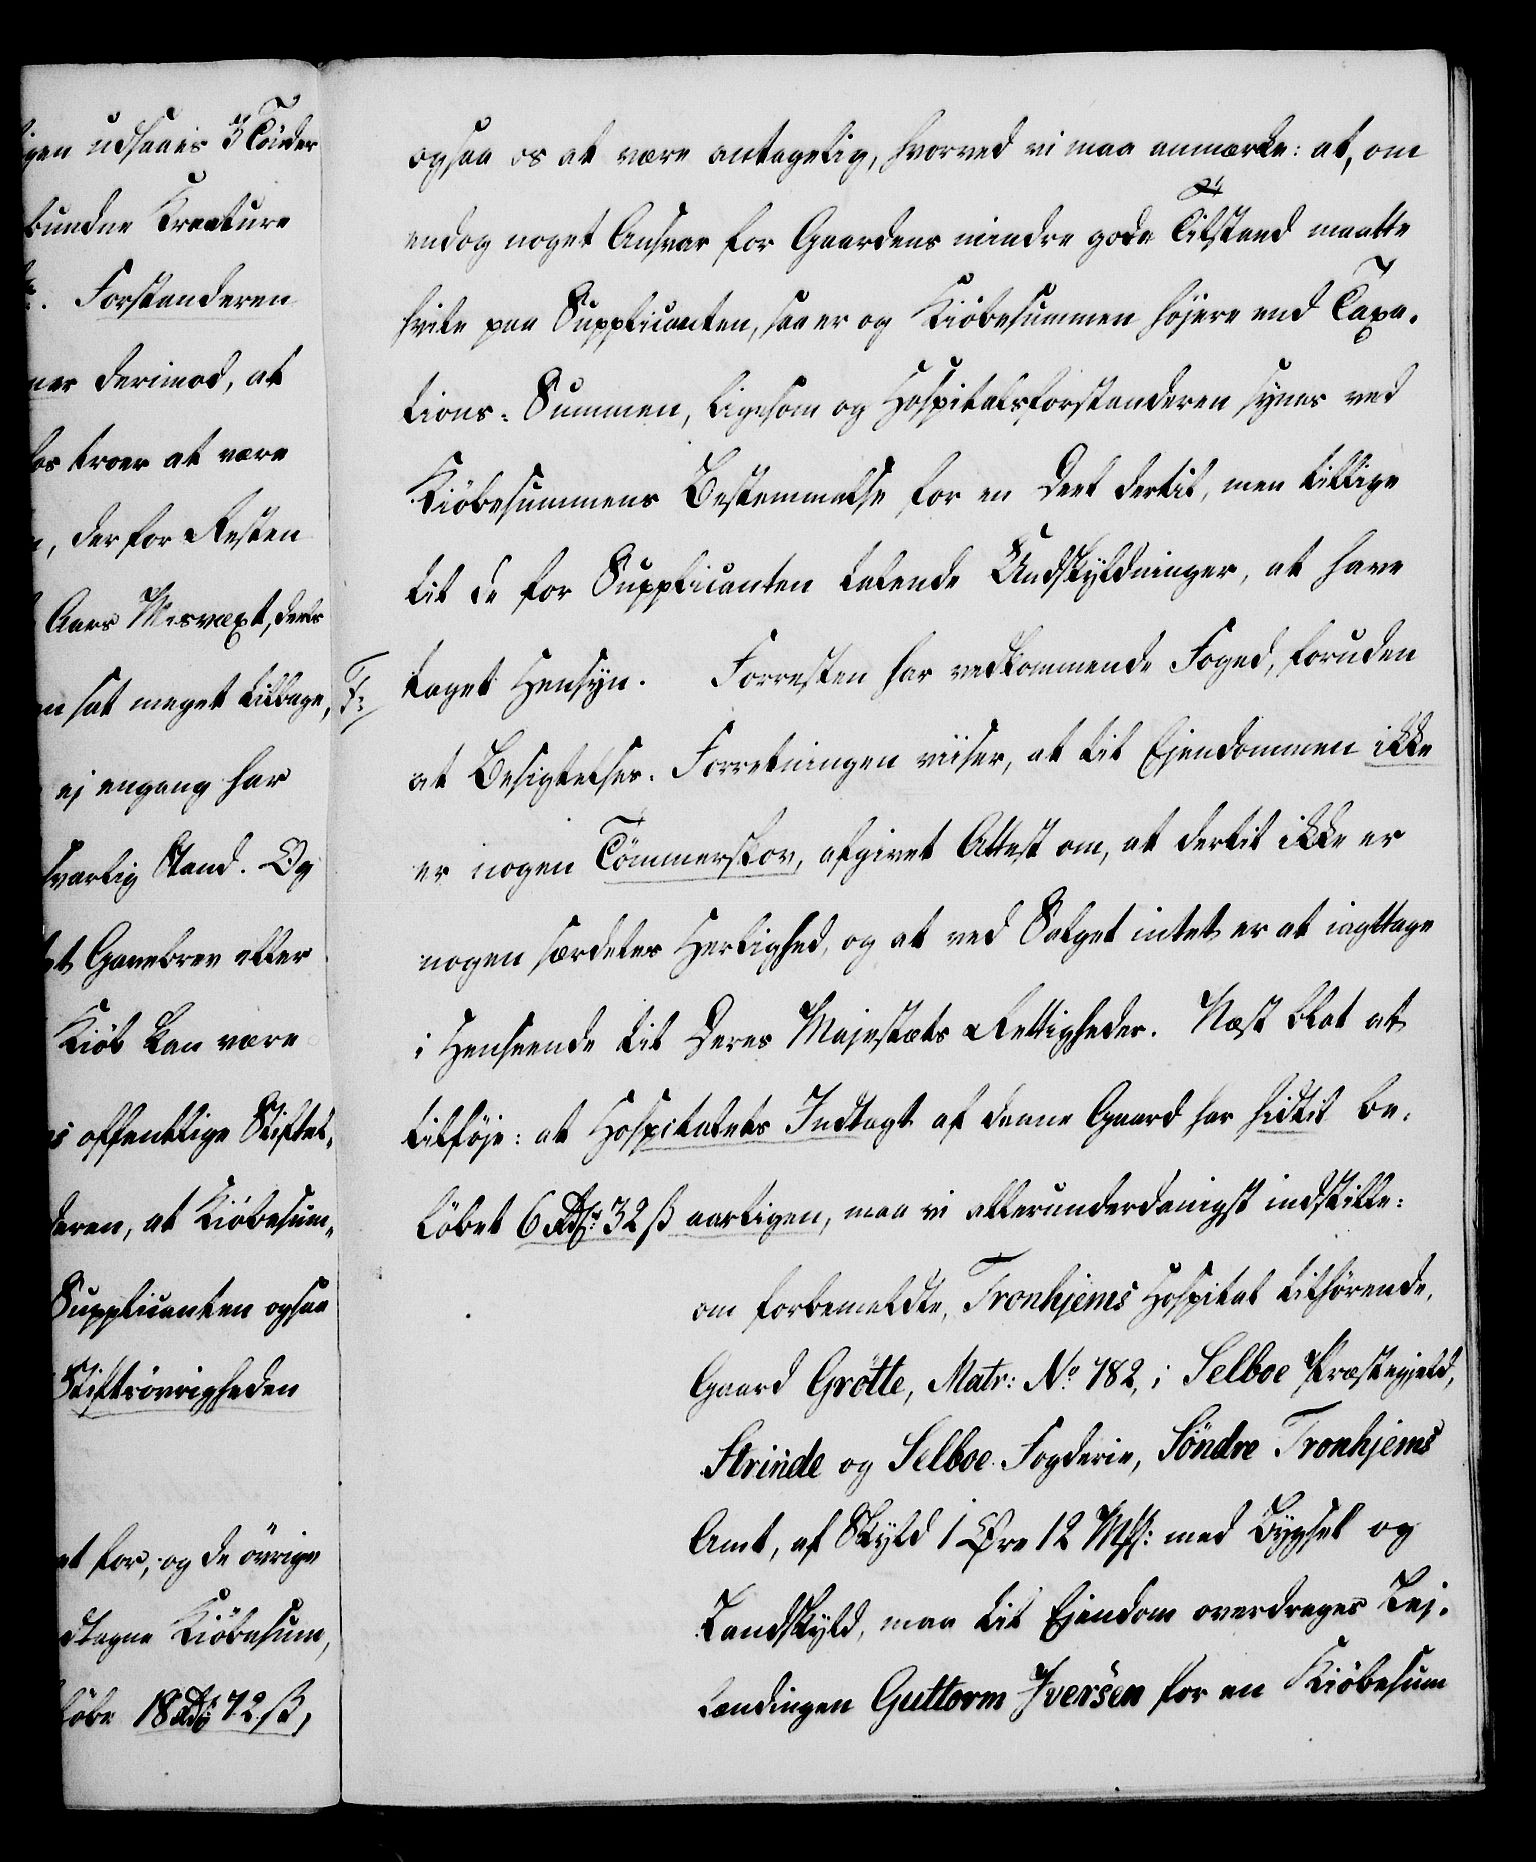 igen udsaaes 3 Tönder
bundne Kreature
Forstanderen
ner derimod, at
los troer at være
, der for Resten
Aars Misvæxt, deels
en sat meget tilbage,
ej engang har
svarlig Stand. Og
et Gavebrev eller
Kiöb kan være
offentlige Stiftel-
deren, at Kiöbesum-
Supplicanten ogsaa
Stiftsövrigheden
at for, og de övrige
dtagne Kiöbesum,
löbe 18 Rdr 72 ß,
ogsaa os at være antagelig, hvorved vi maa anmærke: at, om
endog noget Ansvar for Gaardens mindre gode Tilstand maatte
hvile paa Supplicanten, saa er og Kiöbesummen höjere end Taxa-
tions-Summen, ligesom og Hospitalsforstanderen synes ved
Kiöbesummens Bestemmelse for en Deel dertil, men tillige
til de for Supplicanten talende Undskyldninger, at have
taget Hensyn. Forresten har vedkommende Foged, foruden
at Besigtelses-Forretningen viiser, at til Ejendommen ikke
er nogen Tömmerskov, afgivet Attest om, at dertil ikke er
nogen særdeles Herlighed, og at ved Salget intet er at iagttage
i Henseende til Deres Majestæts Rettigheder. Næst blot at
tilföje: at Hospitalets Indtægt af denne Gaard har hidtil be-
löbet 6 Rdr: 32 ß aarligen, maa vi allerunderdanigst indstille:
om forbemeldte, Tronhjems Hospital tilhörende,
Gaard Grötte, Matr: No 182, i Selboe Præstegjeld,
Strinde og Selboe Fogderie, Söndre Tronhjems
Amt, af Skyld 1 Öre 12 Mk: med Bygsel og
Landskyld, maa til Ejendom overdrages Lej-
lændingen Guttorm Iversen for en Kiöbesum